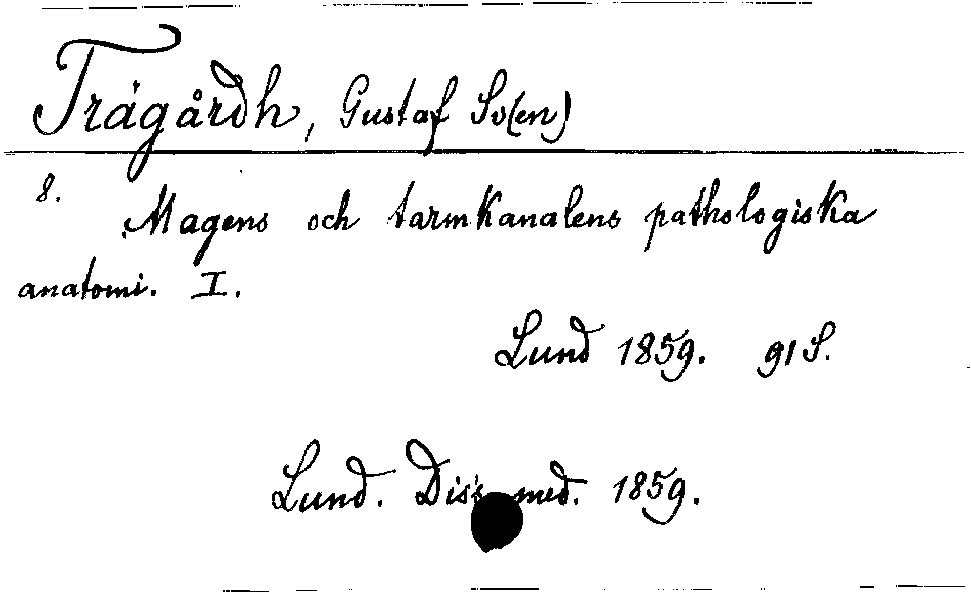 Trägårdh, Gustaf Sv(en)
8.
Magens och tarmkanalens pathologiska
anatomi. I.
Lund 1859. 91 S.
Lund. Diss. med. 1859.